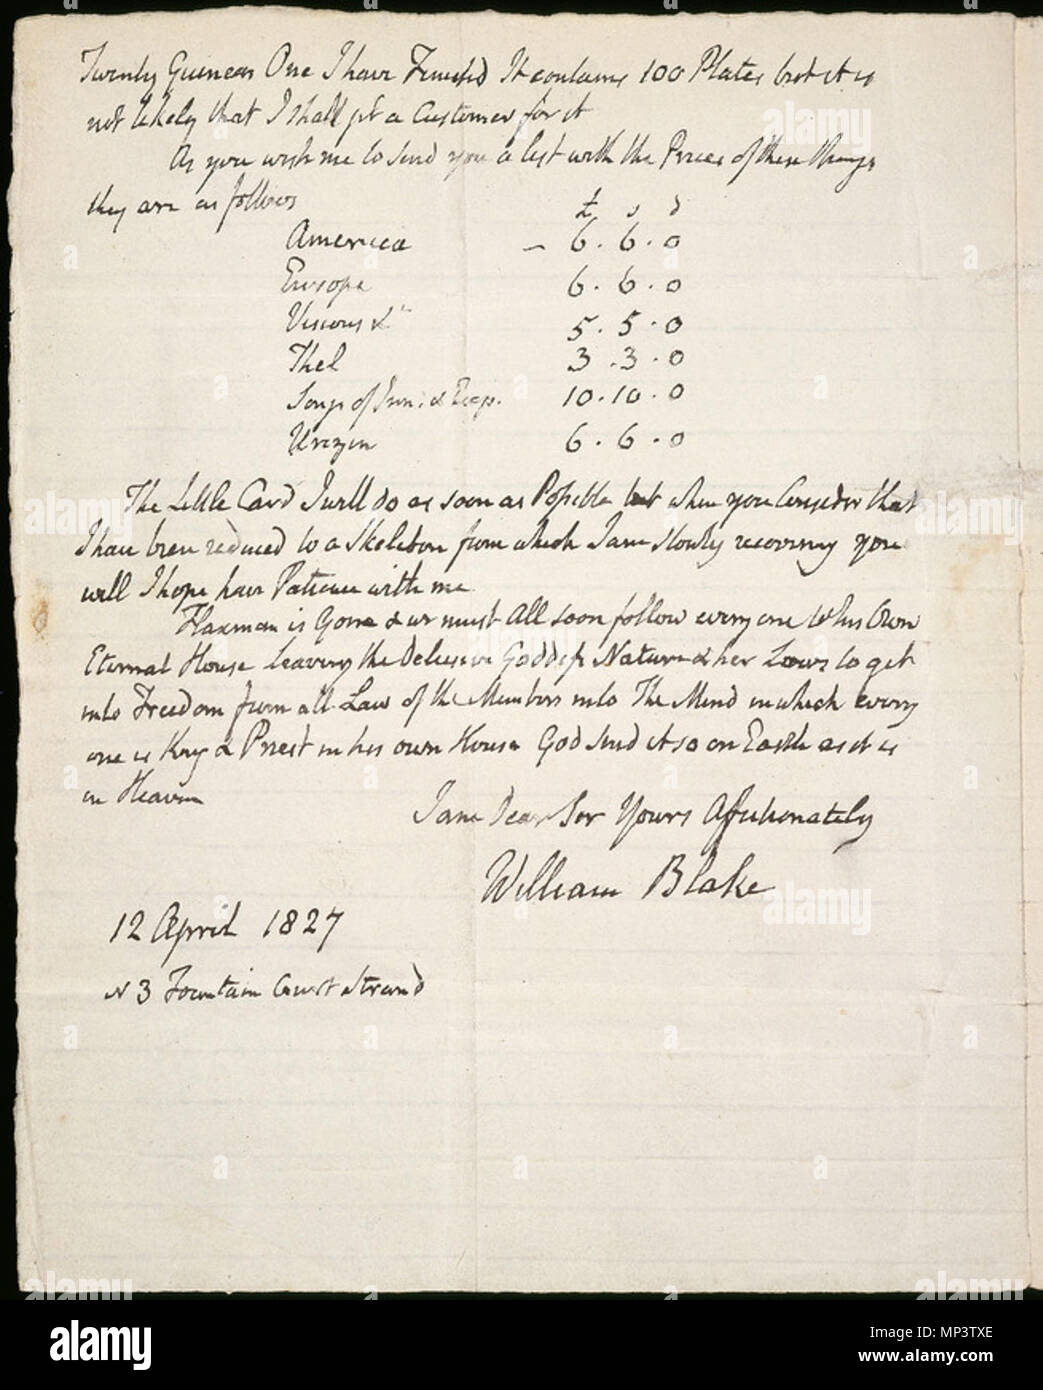 Twenty Guineas One I have Finishd It contains 100 Plates but it is
not likely that I shall get a Customer for it
As you wish me to send you a list with the Prices of these things
they are as follows
£ s d
America - 6.6.0
Europe 6.6.0
Visions &c 5.5.0
Thel 3.3.0
Songs of Inn: & Exp. 10.10.0
Urizen 6.6.0
The Little Card I will do as soon as Possible but when you Consider that
I have been reduced to a Skeleton from which I am slowly recovering you
will I hope have Patience with me
Flaxman is Gone & we must All soon follow every one to his Own
Eternal House Leaving the Delusive Goddess Nature & her Laws to get
into Freedom from all Law of the Members into The Mind in which every
one is King & Priest in his own House God Send it so on Earth as it is
in Heaven
I am Dear Sir Yours Affectionately
William Blake
12 April 1827
N 3 Fountain Court Strand
alamy
Image ID: MP3TXE
www.alamy.com